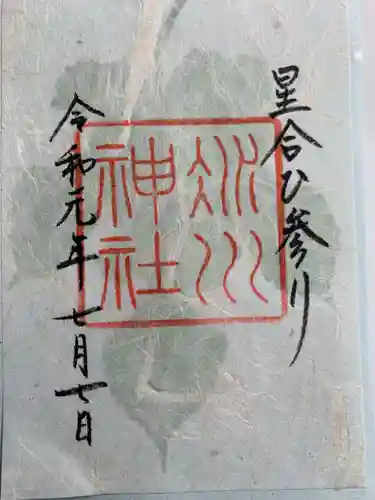 星合ひ参り
氷川
神社
令和元年七月七日